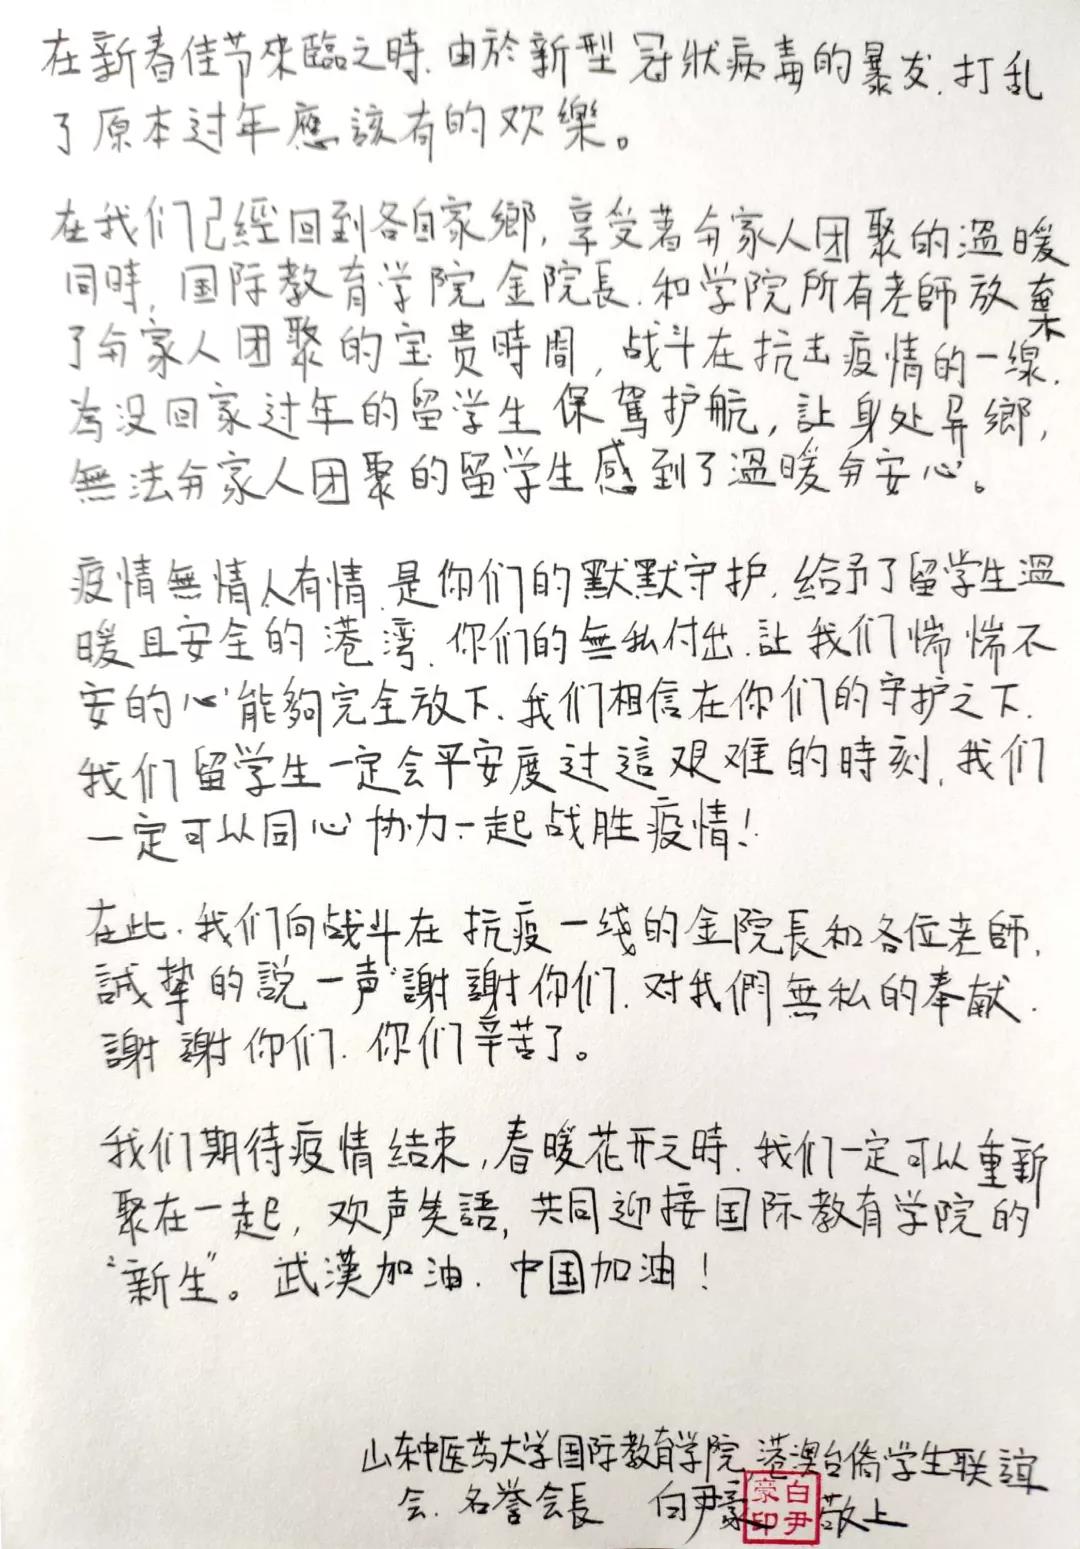 在新春佳节來臨之時.由於新型冠狀病毒的暴发.打乱
了原本过年應該有的欢樂。
在我们已經回到各自家鄉,享受著与家人团聚的溫暖
同時,国际教育学院金院長.和学院所有老師放棄
了与家人团聚的宝贵時間,战斗在抗击疫情的一線.
為没回家过年的留学生保駕护航,让身处异鄉,
無法与家人团聚的留学生感到了溫暖与安心。
疫情無情人有情.是你们的默默守护.給予了留学生溫
暖且安全的港湾.你们的無私付出.让我们惴惴不
安的心能夠完全放下.我们相信在你们的守护之下.
我们留学生一定会平安度过這艰难的時刻,我们
一定可以同心协力一起战胜疫情!
在此.我们向战斗在抗疫一线的金院長和各位老師.
誠挚的說一声"謝謝你们.对我們無私的奉献.
謝謝你们.你们辛苦了。
我们期待疫情结束,春暖花开之時.我们一定可以重新
聚在一起,欢声笑語,共同迎接国际教育学院的
"新生"。武漢加油.中国加油!
山东中医药大学国际教育学院港澳台僑学生联誼
会.名誉会長 白尹豪 敬上
白尹
豪印